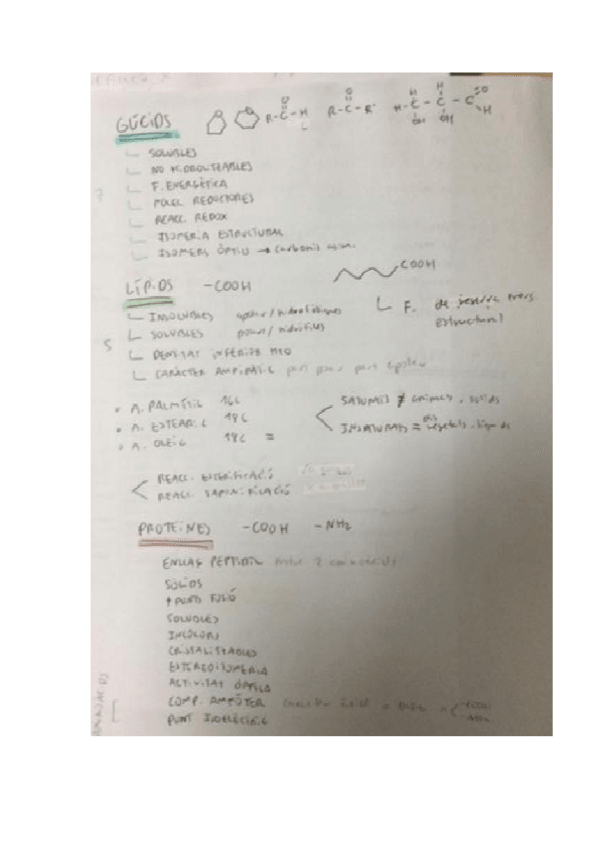 GLÚCIDS
SOLUBLES
NO HIDROLITZABLES
F. ENERGÈTICA
MOLEC. REDUCTORES
REACC. REDOX
ISOMERIA ESTRUCTURAL
ISOMERS ÒPTICS → carboni asim.
LÍPIDS -COOH
COOH
INSOLUBLES apolar / hidrofòbiques
SOLUBLES polars / hidròfils
F. de reserva
estructural
DENSITAT INFERIOR H2O
CARÀCTER AMFIPÀTIC part polar part apolar
A. PALMÍTIC 16C
A. ESTEÀRIC 18C
A. OLEIC 18C =
SATURATS ≠ animals, sòlids
INSATURATS = vegetals, líquids
REACC. ESTERIFICACIÓ
REACC. SAPONIFICACIÓ
PROTEÏNES -COOH -NH2
ENLLAÇ PEPTÍDIC entre 2 aminoàcids
SÒLIDS
↑ PUNT FUSIÓ
SOLUBLES
INCOLORS
CRISTALITZABLES
ESTEREOISOMERIA
ACTIVITAT ÒPTICA
COMP. AMFÒTER
PUNT ISOELÈCTRIC